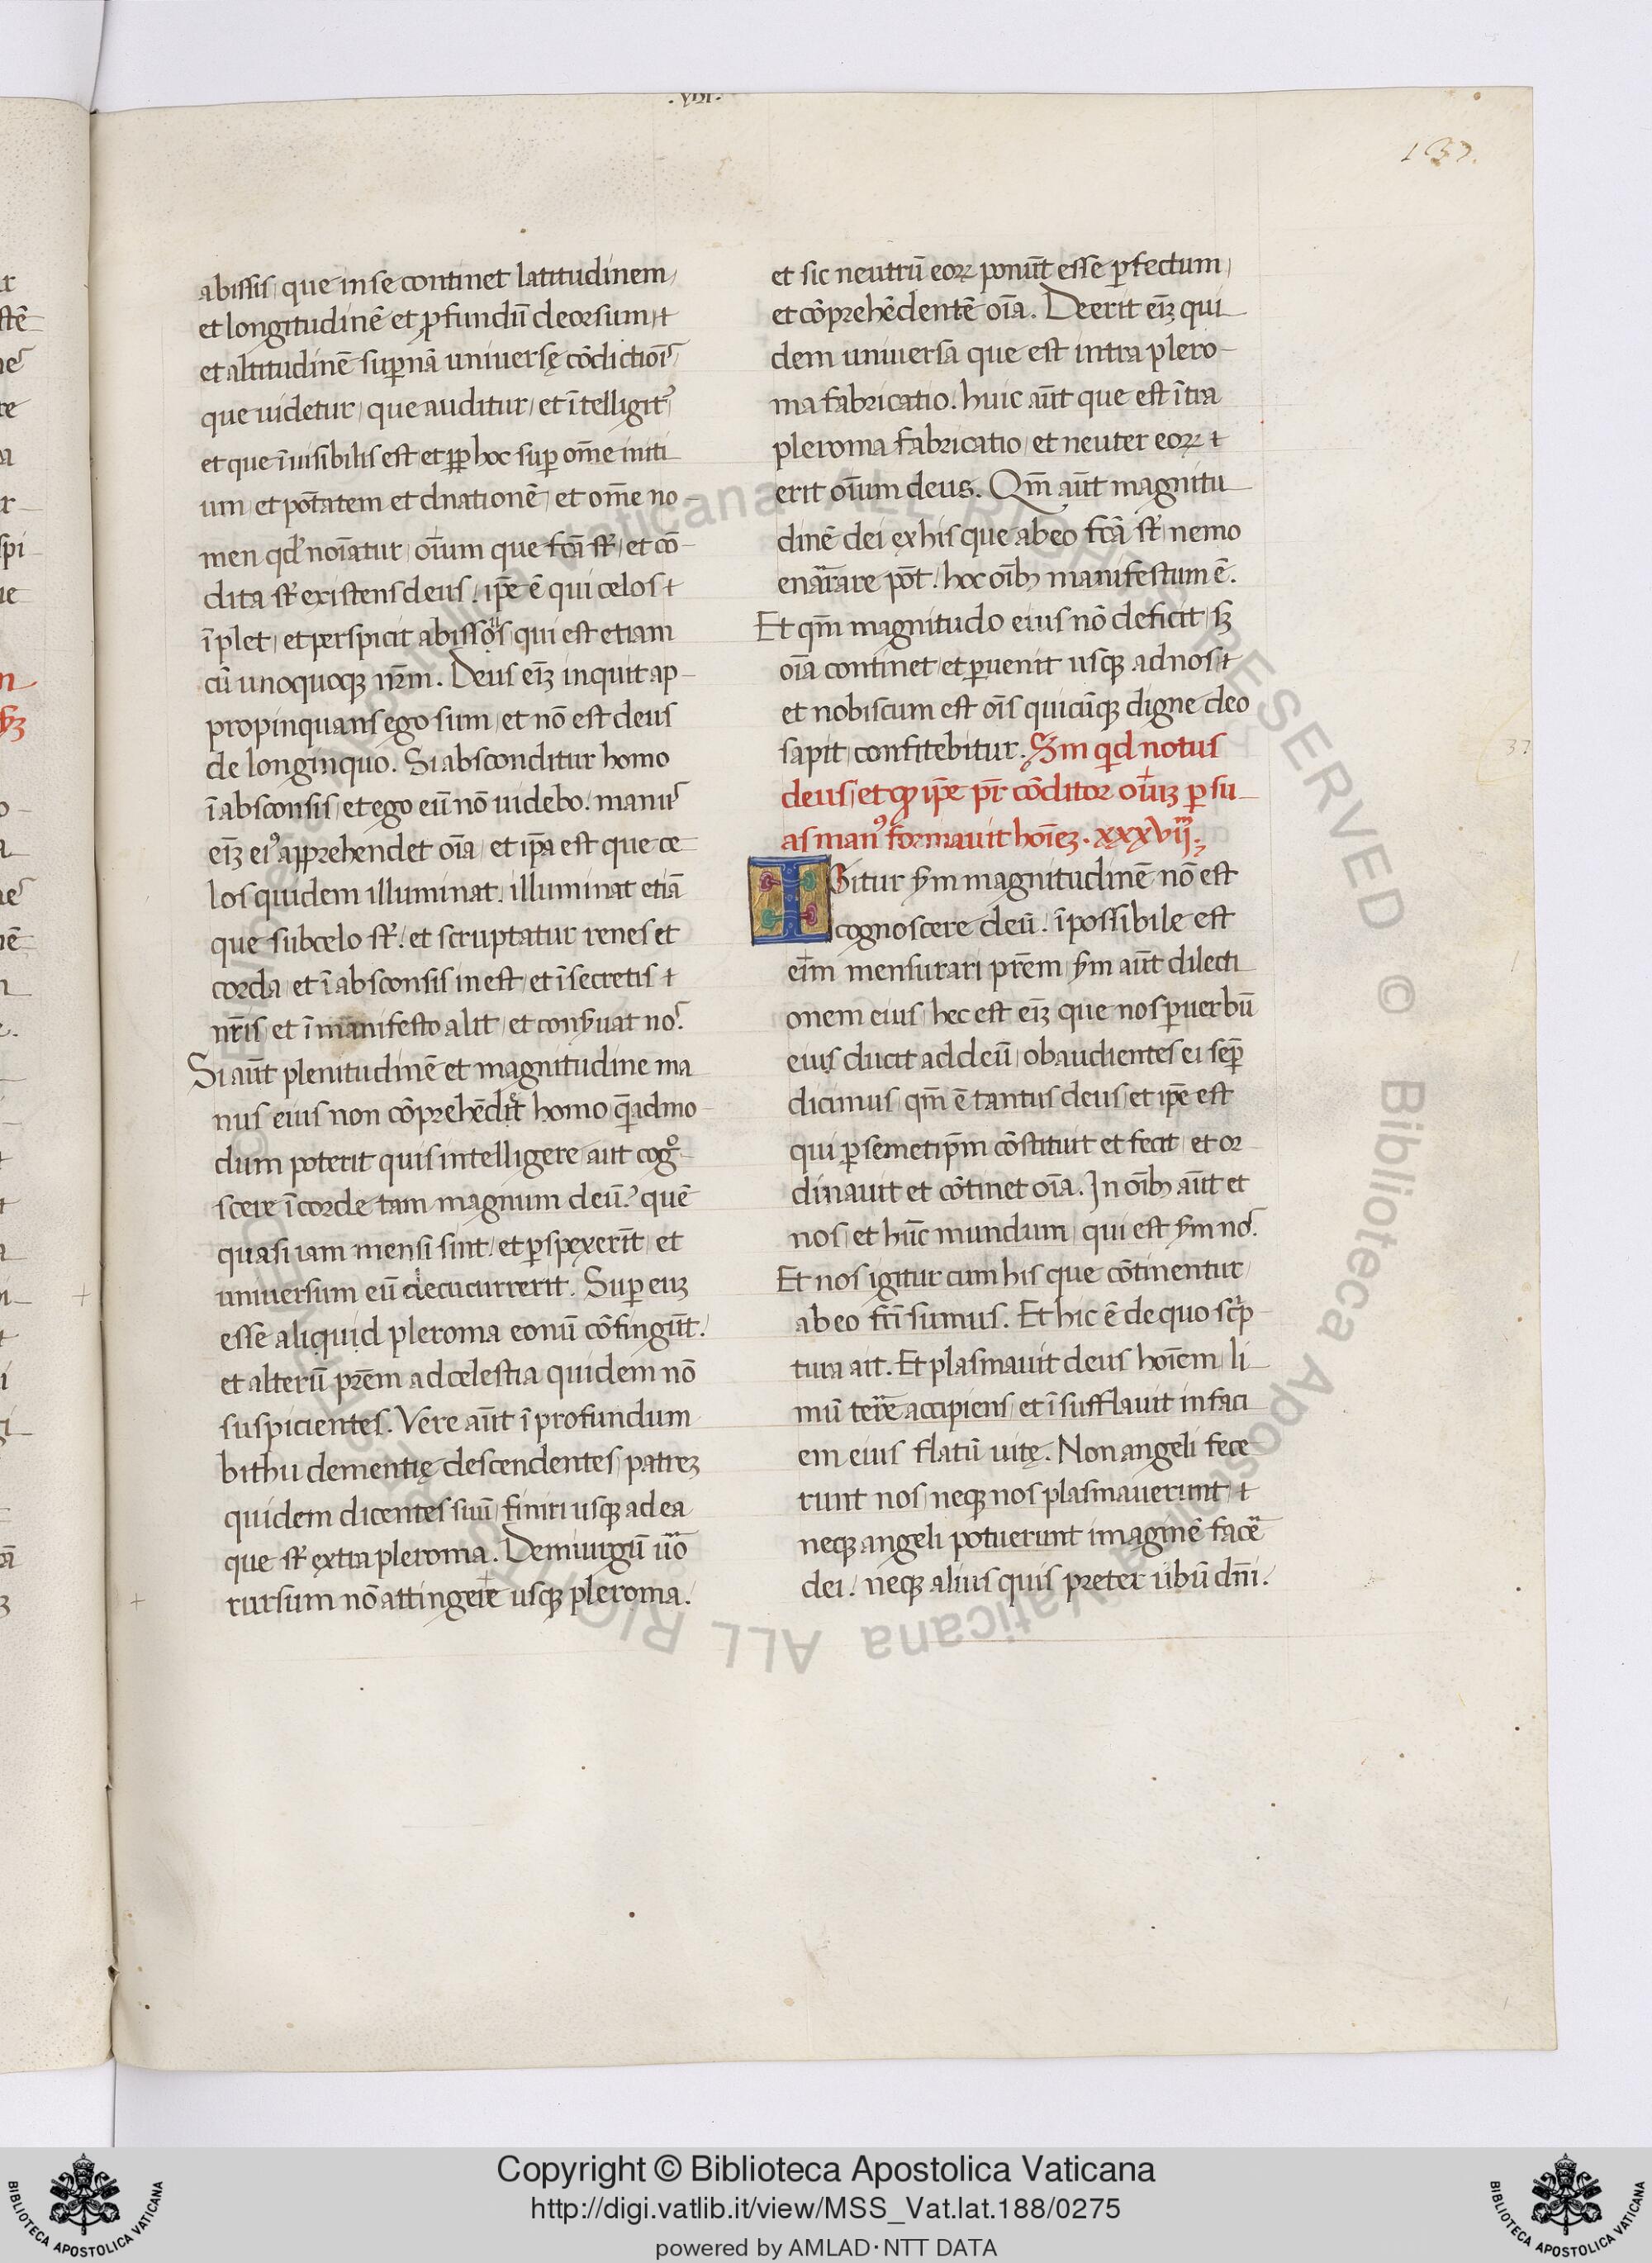 .VIII.
137.
abissis, que in se continet latitudinem,
et longitudinē et ꝓfundū deorsum,
et altitudinē suꝑnā uniuersę cōdictiōis,
que uidetur, que auditur, et ītelligit᷒,
et que īuisibilis est et ꝓꝑ hoc suꝑ om̄e initi
um, et pōtatem et dn̄ationē, et om̄e no-
men qd̓ noīatur, oīum que fc̄ā st̄, et cō-
dita st̄ existens deus. ip̄e ē qui celos
īplet, et perspicit abissos, qui est etiam
cū unoquoqꝫ nr̄m. Deus eīꝫ inquit ap-
propinquans ego sum, et nō est deus
de longinquo. Si absconditur homo
ī absconsis, et ego eū nō uidebo. manus
eīꝫ ei᷒ apprehendet oīa, et ip̄a est que ce
los quidem illuminat. illuminat etiā
que sub celo st̄. et scruptatur renes et
corda, et ī absconsis inest, et ī secretis
nr̄is, et ī manifesto alit, et conẜuat nos.
Si aūt plenitudinē et magnitudine ma
nus eius non cōprehēdit homo q̄admo
dum poterit quis intelligere aut cogno-
scere ī corde tam magnum deū? quē
quasi iam mensi sint, et ꝑspexerīt, et
uniuersum eū decucurrerit. Suꝑ euꝫ
esse aliquid pleroma eonū cōfingūt.
et alterū pr̄em ad celestia quidem nō
suspicientes. Vere aūt ī profundum
bithu dementię descendentes, patreꝫ
quidem dicentes suū, finiri usqꝫ ad ea
que st̄ extra pleroma. Demiurgū uō
rursum nō attingere usqꝫ pleroma.
et sic neutrū eoꝝ ponūt esse ꝑfectum,
et cōprehēdentē oīa. Deerit eīꝫ qui
dem uniuersa que est intra plero-
ma fabricatio. huic aūt que est ītra
pleroma fabricatio, et neuter eoꝝ
erit oīum deus. Qm̄ aūt magnitu
dinē dei ex his que ab eo fc̄ā st̄, nemo
enarrare pōt. hoc oībꝫ manifestum ē.
Et qm̄ magnitudo eius nō deficit, sꝫ
oīa continet, et ꝑuenit usqꝫ ad nos,
et nobiscum est oīs quicūqꝫ digne deo
sapit, confitebitur. Sm̄ qd notus
deus, et qꝫ ip̄e pr̄ cōditor oīuꝫ ꝑ su
as man᷒ formauit hoīeꝫ. xxxvij.
IGitur ẜm magnitudinē nō est
cognoscere deū. īpossibile est
eīm mensurari pr̄em, ẜm aūt dilecti
onem eius, hec est eīꝫ que nos ꝑ uerbū
eius ducit ad deū, obaudientes ei seꝑ
dicimus, qm̄ ē tantus deus, et ip̄e est
qui ꝑ semetip̄m cōstituit et fecit, et or
dinauit et cōtinet oīa. In oībꝫ aūt et
nos, et hūc mundum, qui est ẜm nos.
Et nos igitur cum his que cōtinentur
ab eo fc̄i sumus. Et hic ē de quo sc̄p
tura ait. Et plasmauit deus hoīem, li
mū terre accipiens, et ī sufflauit in faci
em eius flatū uitę. Non angeli fece
runt nos, neqꝫ nos plasmauerunt,
neqꝫ angeli potuerunt imaginē facē
dei. neqꝫ alius quis preter ūbū dn̄i.
37
Copyright © Biblioteca Apostolica Vaticana
http://digi.vatlib.it/view/MSS_Vat.lat.188/0275
powered by AMLAD·NTT DATA